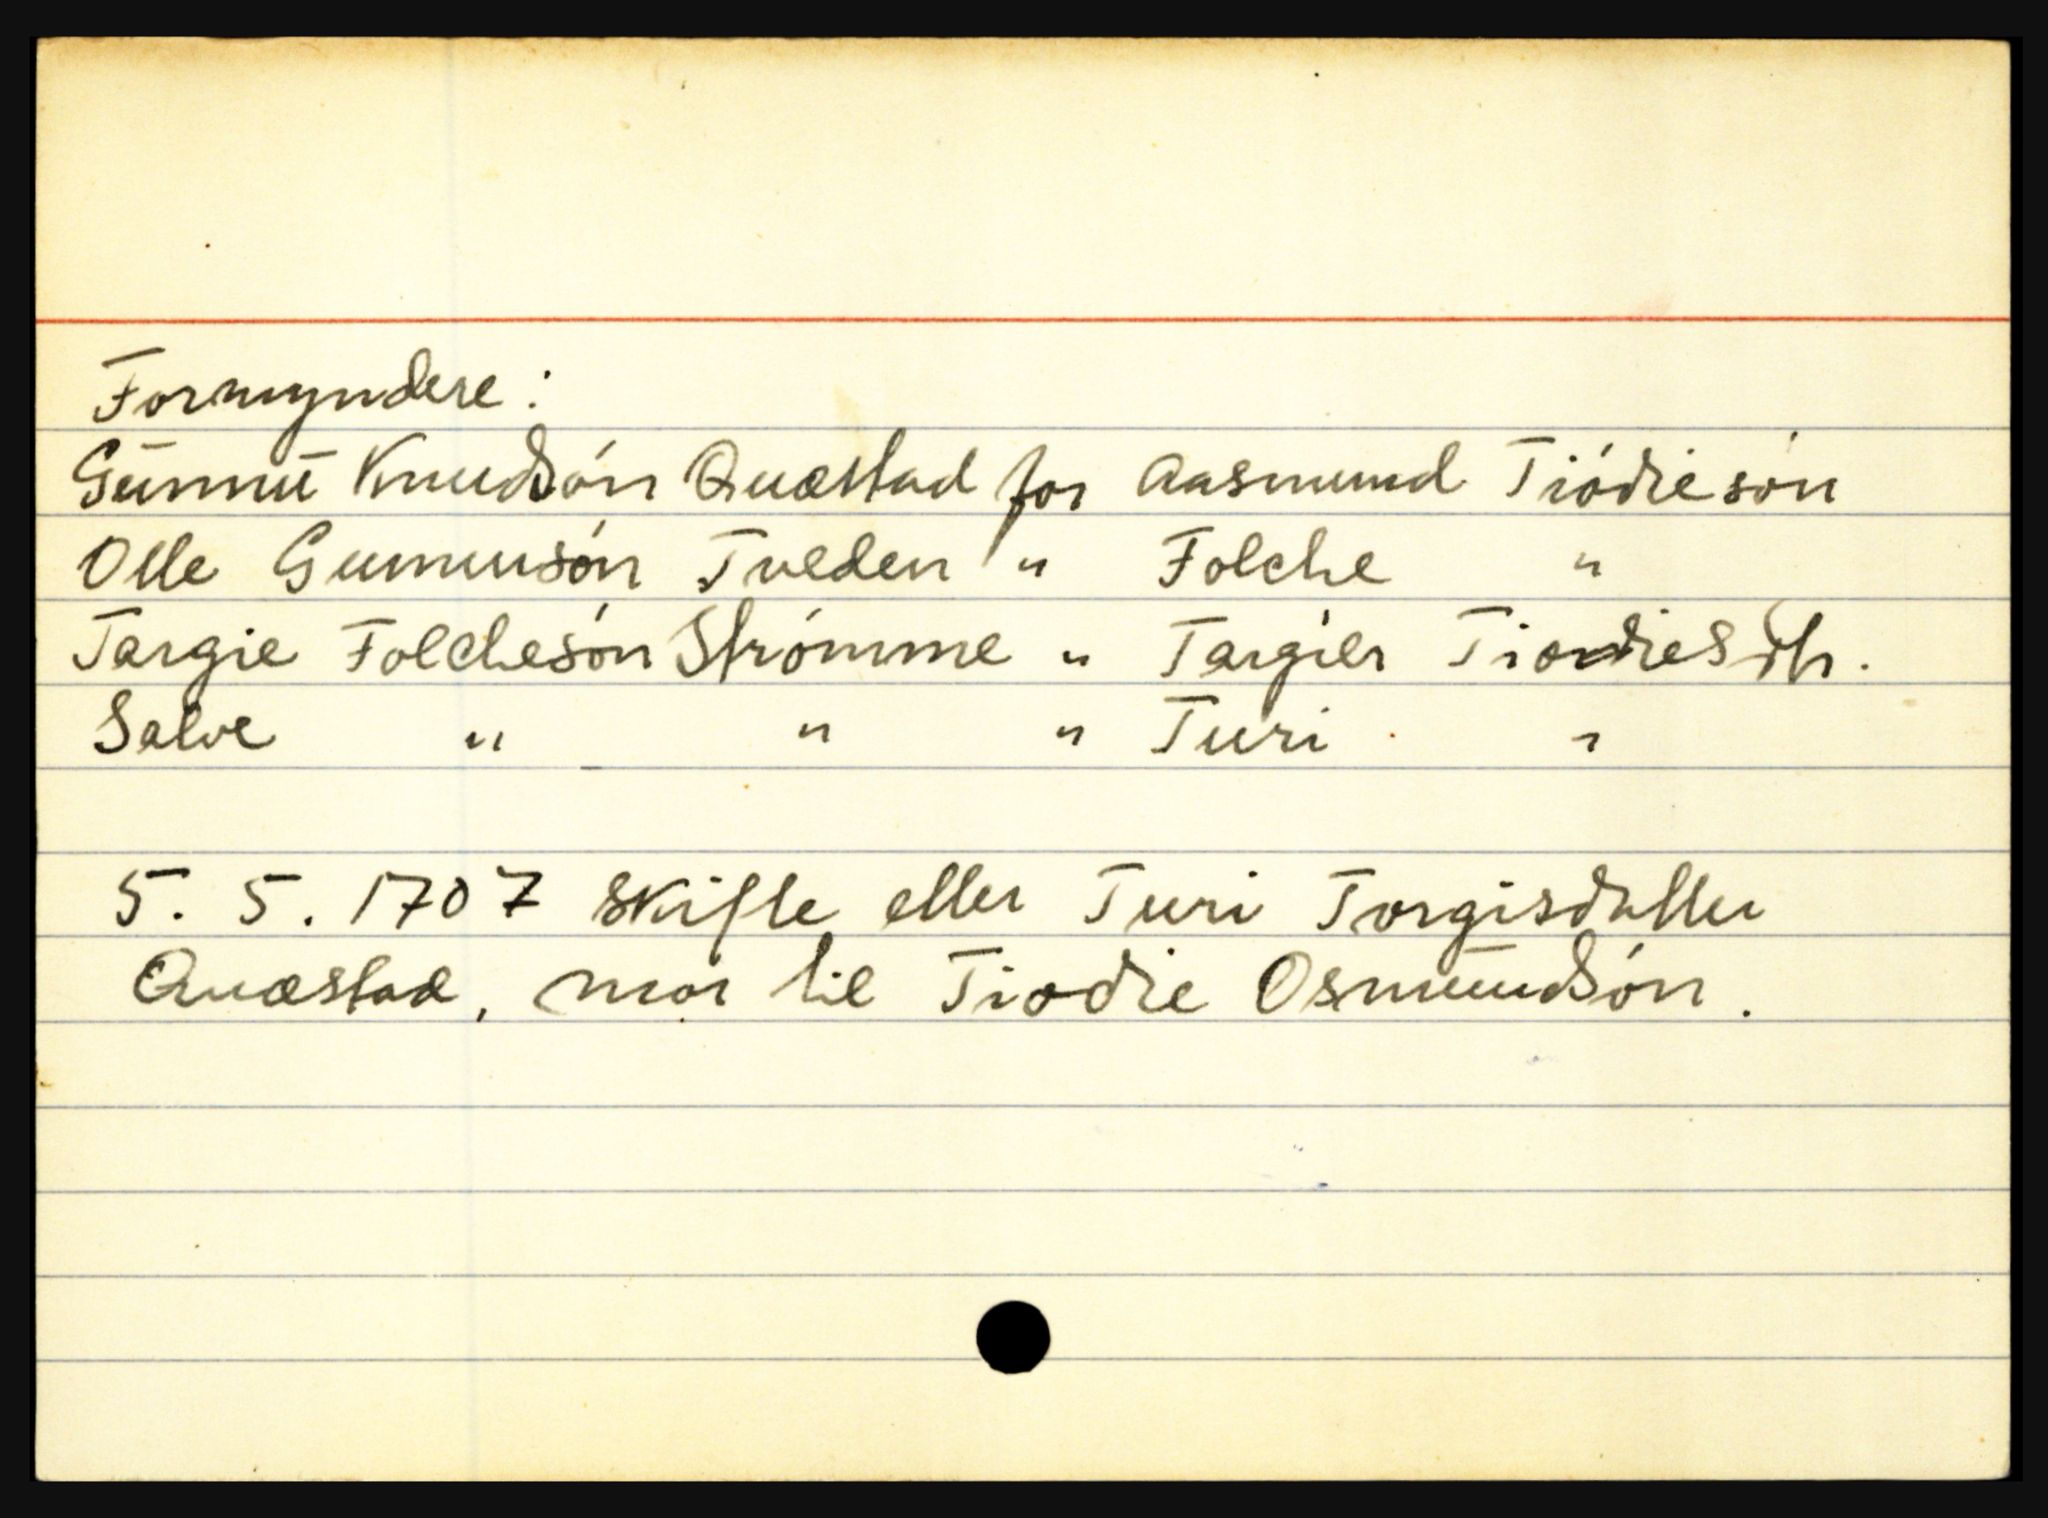 Formyndere:
Gunnu Knudsón Quæstad for Aasmund Tiódiesón
Olle Gunnusón Tveden " Folche "
Targie Folchesón Strómme " Targier Tiodies dtr.
Salve " " " Turi "
5. 5. 1707 skifte etter Turi Torgisdatter
Quæstad, mor til Tiodie Osmundsón.